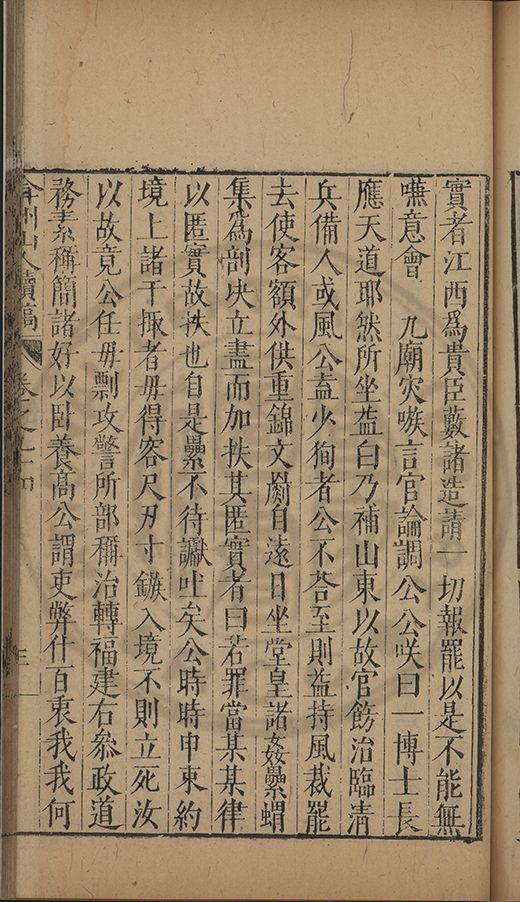 實者江西爲貴臣藪諸造請一切報罷以是不能無
嚥意會 九廟灾嗾言官論調公公咲曰一博士長
應天道耶然所坐益白乃補山東以故官飭治臨清
兵備人或風公盍少狥者公不荅至則益持風裁罷
去使客額外供重錦文罽自遠日坐堂皇諸姦纍蝟
集爲剖决立盡而加抶其匿實者曰若罪當某某律
以匿實故抶也自是纍不待讞吐矣公時時申束約
境上諸干掫者毋得客尺刃寸鏃入境不則立死汝
以故竟公任毋剽攻警所部稱治轉福建右叅政道
務素稱簡諸好以卧養高公謂吏弊什百衷我我何
弇州山人續稿 卷之 十四